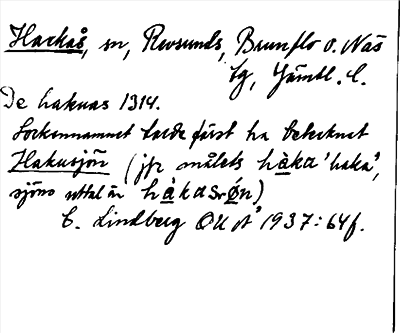 Hackås, sn, Revsunds, Brunflo o. Näs
tg, Jämtl. l.
De hakuas 1314.
Sockennamnet torde först ha betecknat
Hakusjön (jfr målets hàka 'haka',
sjöns uttal är hàkasrǿn)
E. Lindberg OUÅ 1937: 64f.